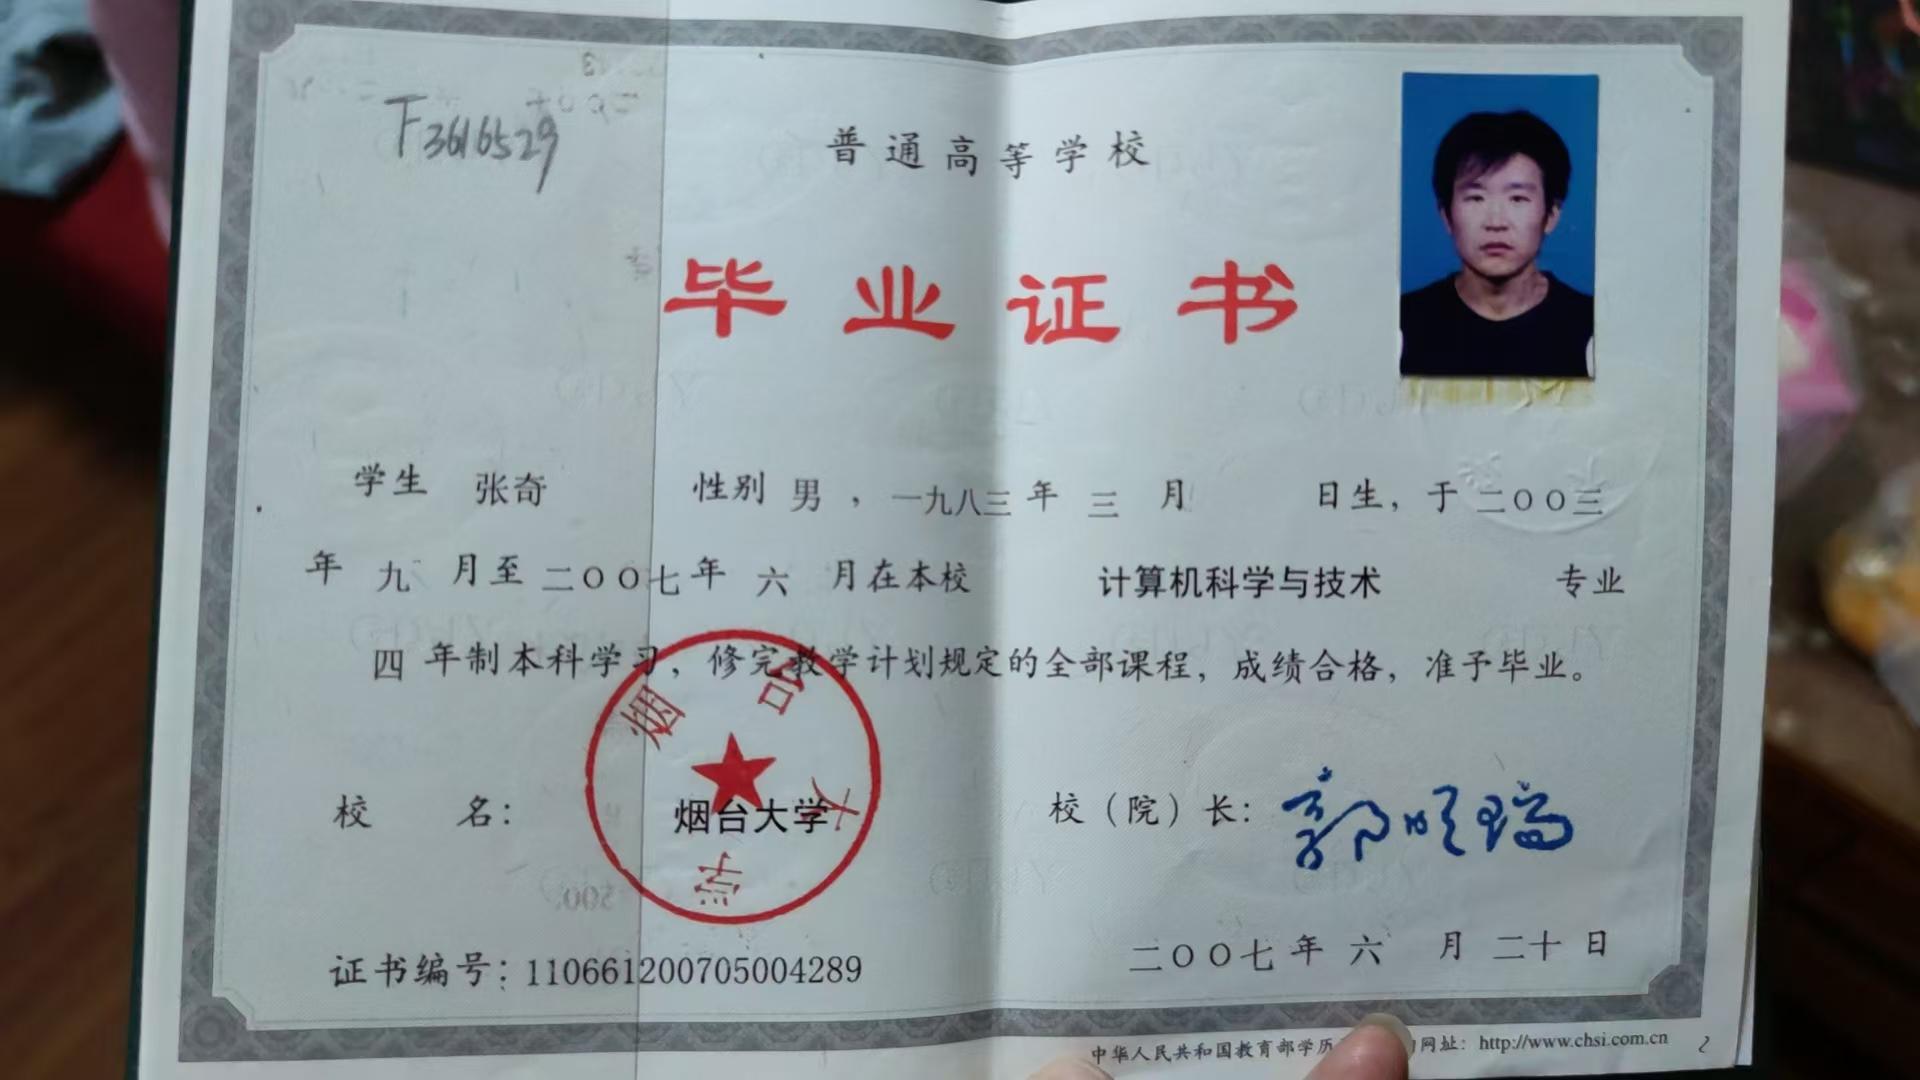 F3616529
普通高等学校
毕业证书
学生 张奇 性别 男 ，一九八三 年 三 月 日生，于 二〇〇三
年 九 月至 二〇〇七 年 六 月在本校 计算机科学与技术 专业
四 年制本科学习，修完教学计划规定的全部课程，成绩合格，准予毕业。
烟台大学
校 名： 烟台大学 校（院）长： 郭明瑞
证书编号：110661200705004289 二〇〇七 年 六 月 二十 日
中华人民共和国教育部学历 网址：http://www.chsi.com.cn